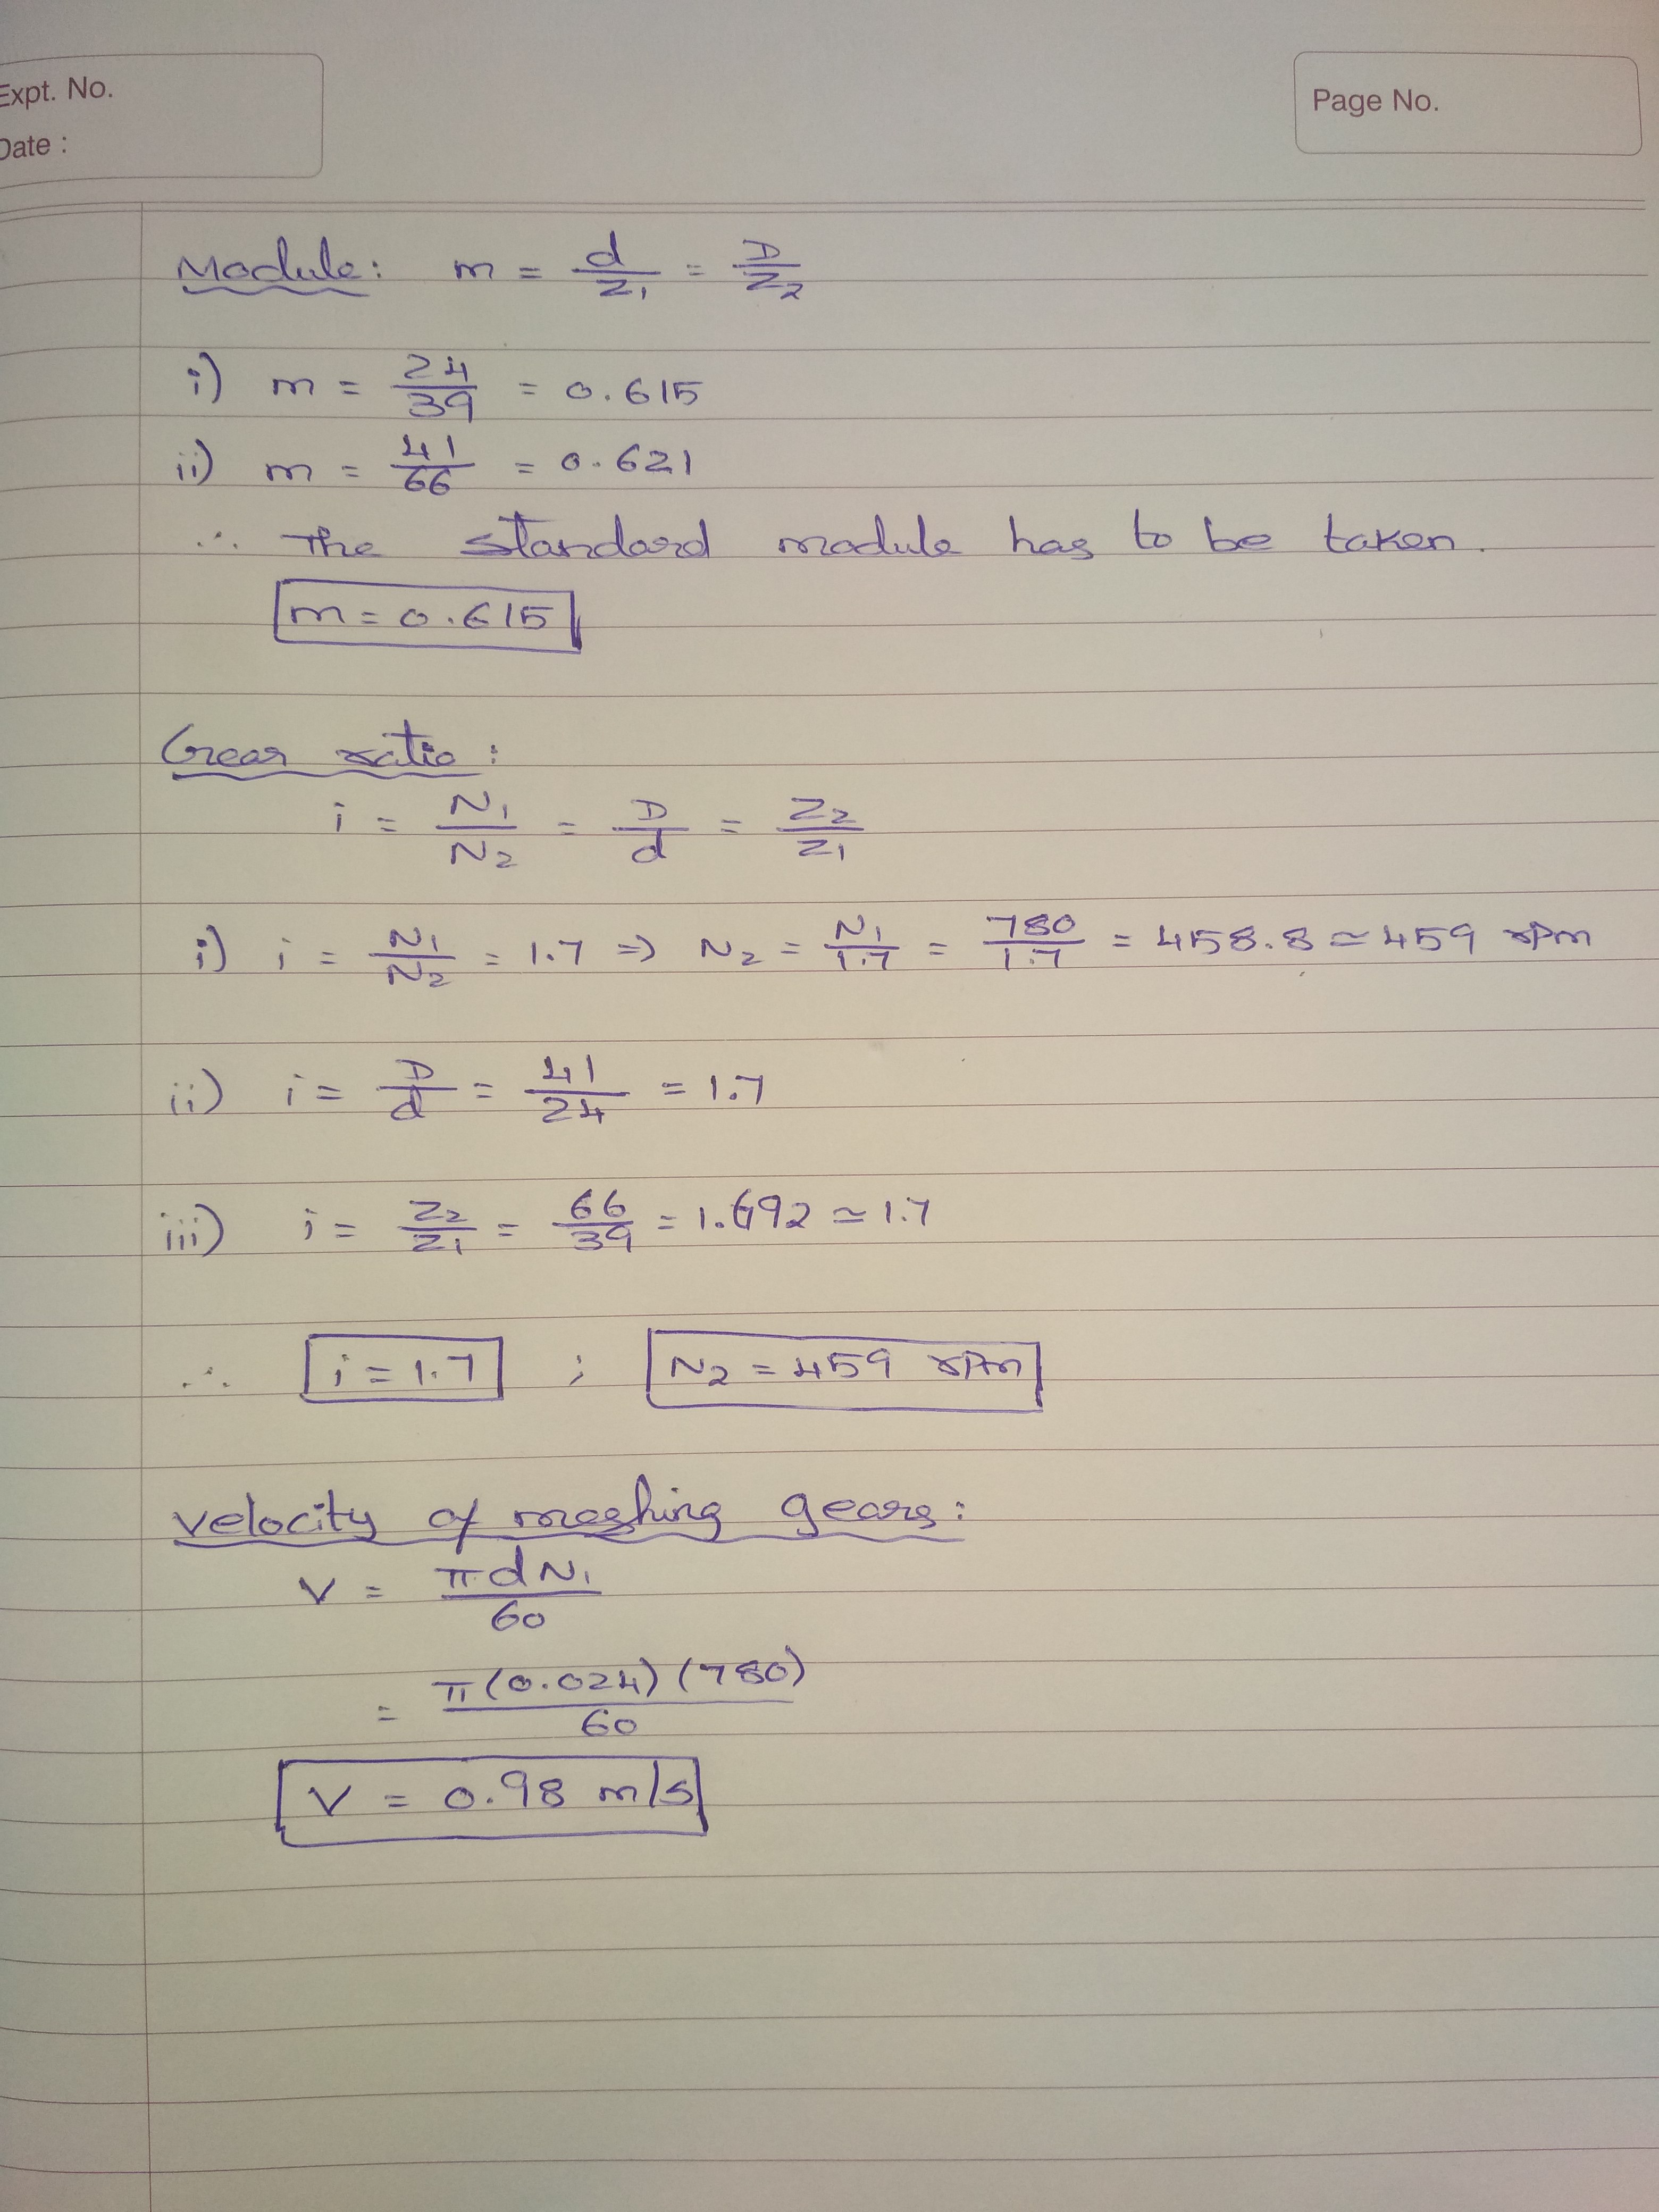 Expt. No.
Date :
Page No.
Module: m = d/Z₁ = D/Z₂
i) m = 24/39 = 0.615
ii) m = 41/66 = 0.621
∴ The standard module has to be taken.
m = 0.615
Gear ratio :
i = N₁/N₂ = D/d = Z₂/Z₁
i) i = N₁/N₂ = 1.7 ⇒ N₂ = N₁/1.7 = 780/1.7 = 458.8 ≃ 459 rpm
ii) i = D/d = 41/24 = 1.7
iii) i = Z₂/Z₁ = 66/39 = 1.692 ≃ 1.7
∴ i = 1.7 ; N₂ = 459 rpm
Velocity of meshing gears:
V = πdN₁/60
= π(0.024)(780)/60
V = 0.98 m/s